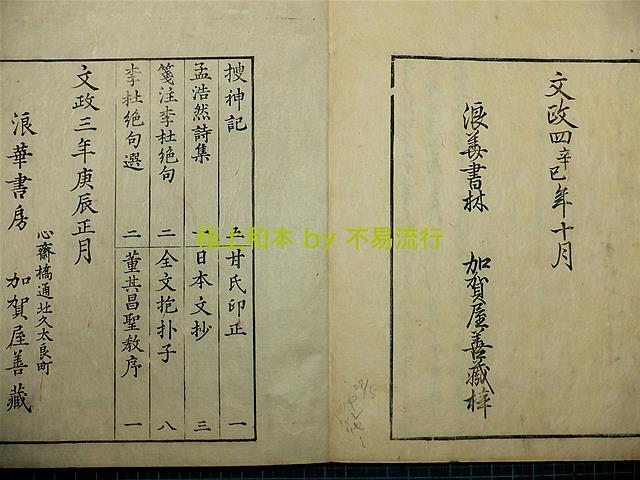 文政四辛巳年十月
浪華書林 加賀屋善藏梓
搜神記 甘氏印正 一
孟浩然詩集 日本文抄 三
箋注李杜絶句 二 全文抱朴子 八
李杜絶句選 二 董其昌聖教序 一
文政三年庚辰正月
浪華書房 心齋橋通北久太良町 加賀屋善藏
極上和本 by 不易流行